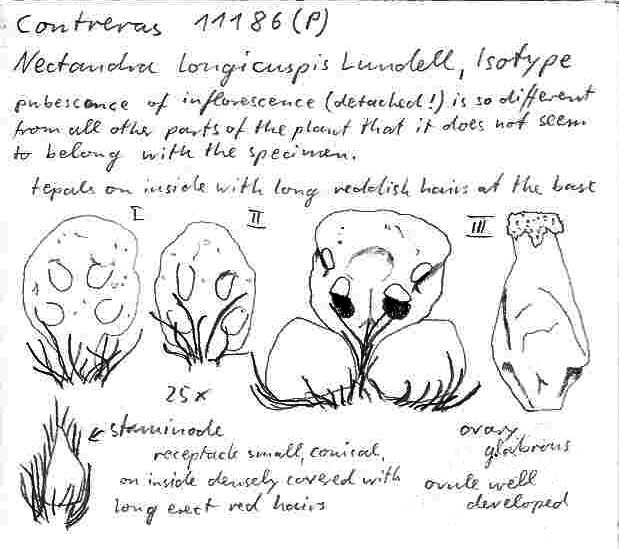 Contreras 11186 (P)
Nectandra longicuspis Lundell, Isotype
pubescence of inflorescence (detached!) is so different
from all other parts of the plant that it does not seem
to belong with the specimen.
tepals on inside with long reddish hairs at the base
I II III
25x
staminode
receptacle small, conical,
on inside densely covered with
long erect red hairs
ovary
glabrous
ovule well
developed